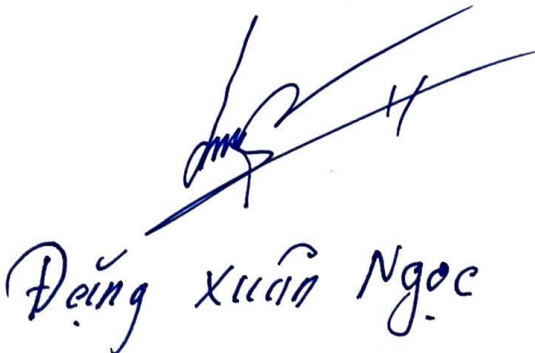 Đặng Xuân Ngọc